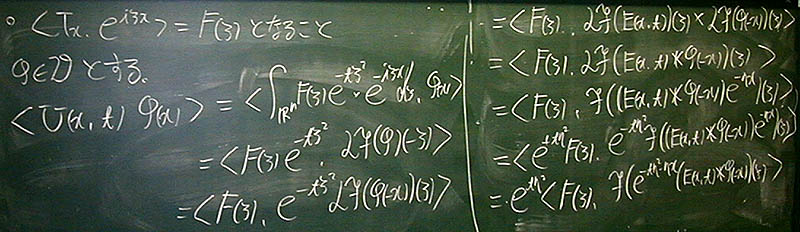 。<Tx, e^{iζx}> = F(ζ) となること
φ∈𝒟 とする.
<U(x,t) φ(x)> = <∫_{ℝⁿ} F(ζ)e^{-tζ²}·e^{-iζx}dζ, φ(x)>
= <F(ζ)e^{-tζ²}, 2ℱ(φ)(-ζ)>
= <F(ζ), e^{-tζ²}2ℱ(φ(-x))(ζ)>
= <F(ζ), 2ℱ(E(x,t))(ζ) × 2ℱ(φ(-x))(ζ)>
= <F(ζ), 2ℱ(E(x,t)*φ(-x))(ζ)>
= <F(ζ), ℱ((E(x,t)*φ(-x))e^{-ηx})(ζ)>
= <e^{tη²}F(ζ), e^{-tη²}ℱ((E(x,t)*φ(-x))e^{-ηx})(ζ)>
= e^{tη²}<F(ζ), ℱ(e^{-tη²-ηx}(E(x,t)*φ(-x))(ζ)>